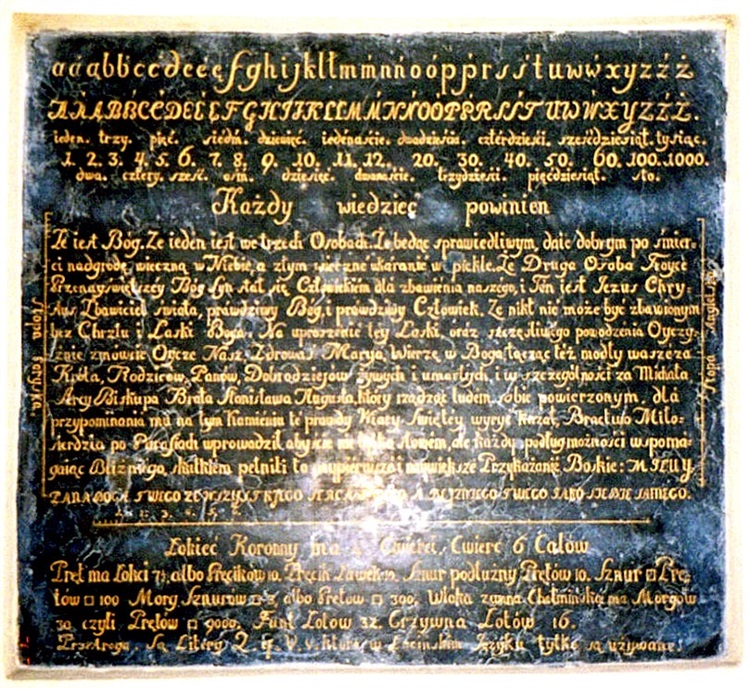 aáąbbćcdeéęfghijklłmḿnńoópṕrsśtuwẃxyzźż
AÁĄBBĆCDEÉĘFGHIJKLŁMḾNŃOÓPṔRSŚTUWẂXYZŹŻ.
ieden. trzy. pięć. siedm. dziewięć. iedenaście. dwadzieścia. czterdzieści. sześćdziesiąt. tysiąc.
1. 2. 3. 4. 5. 6. 7. 8. 9. 10. 11. 12. 20. 30. 40. 50. 60. 100. 1000.
dwa. cztery. sześć. ośm. dziesięć. dwanaście. trzydzieści. pięćdziesiąt. sto.
Każdy wiedzieć powinien
Że iest Bóg. Że ieden iest we trzech Osobach. Że będąc sprawiedliwym, daie dobrym po śmier-
ci nadgrodę wieczną w Niebie, a złym wieczne ukaranie w piekle. Że Druga Osoba Troyce
Przenayświętszey Bóg Syn stał się Człowiekiem dla zbawienia naszego, i Ten iest Jezus Chry-
stus Zbawiciel świata, prawdziwy Bóg, i prawdziwy Człowiek. Że nikt nie może być zbawionym
bez Chrztu i Łaski Boga. Na uproszenie tey Łaski, oraz szczęśliwego powodzenia Oyczy-
znie zmówcie Oycze Nasz, Zdrowaś Marya, Wierzę w Boga łącząc też modły wasze za
Króla, Rodziców, Panów, Dobrodziejów żywych i umarłych, i w szczególności za Michała
Arcy Biskupa Brata Stanisława Augusta, który rządząc ludem sobie powierzonym, dla
przypominania mu na tym Kamieniu te prawdy Wiary Świętey wyryć kazał, Bractwo Miło-
sierdzia po Parafiach wprowadził aby ście nie tylko słowem, ale każdy podług możności wspoma-
gaiąc Bliźniego, skutkiem pełnili to naypierwsze i naywiększe Przykazanie Boskie: MIŁUY
PANA BOGA TWEGO ZE WSZYSTKIEGO SERCA TWEGO, A BLIZNIEGO TWEGO JAKO SIEBIE SAMEGO.
Stopa Paryska
Stopa Angielska
1. 2. 3. 4. 5. 6.
Łokieć Koronny ma 4 Cwierci, Cwierć 6 Calów
Pręt ma Łokci 7½, albo Pręcików 10. Pręcik Ławek 10. Sznur podłużny Prętów 10. Sznur □ Prę-
tów □ 100 Morg Sznurów □ 3, albo Prętów □ 300, Włoka zwana Chełmińska ma Morgów
30, czyli Prętów □ 9000. Funt Łotów 32. Grzywna Łotów 16.
Przestroga. Są Litery Q. V. v. które w Łacińskim Języku tylko są używane: